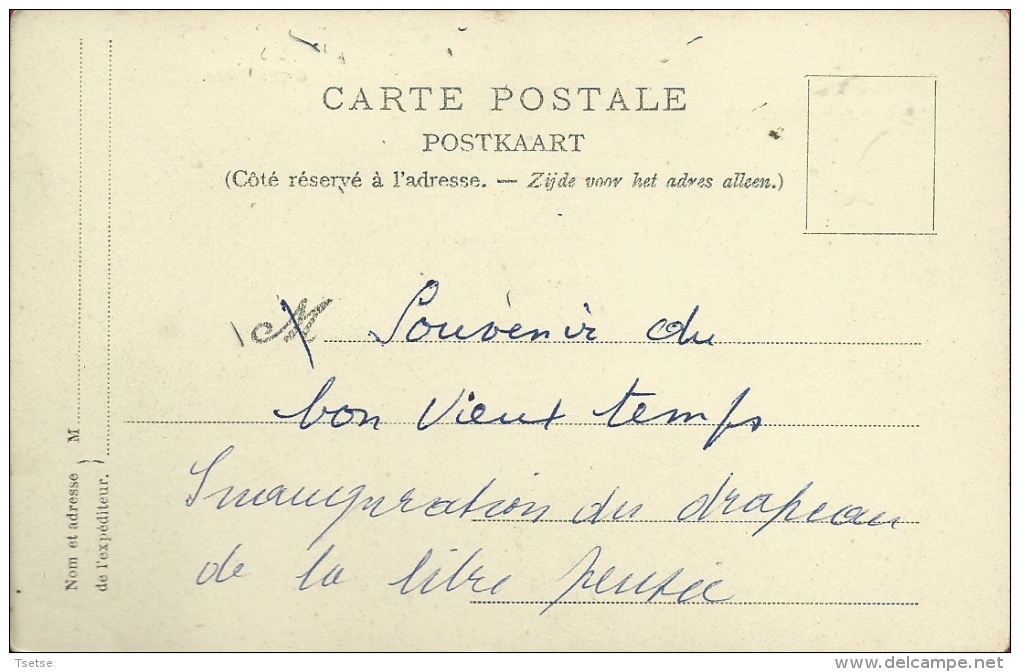 CARTE POSTALE
POSTKAART
(Côté réservé à l'adresse. — Zijde voor het adres alleen.)
M Souvenir du
bon vieux temps
Inauguration du drapeau
de la libre pensée
Nom et adresse } M
de l'expéditeur.
Tsetse
www.delcampe.net